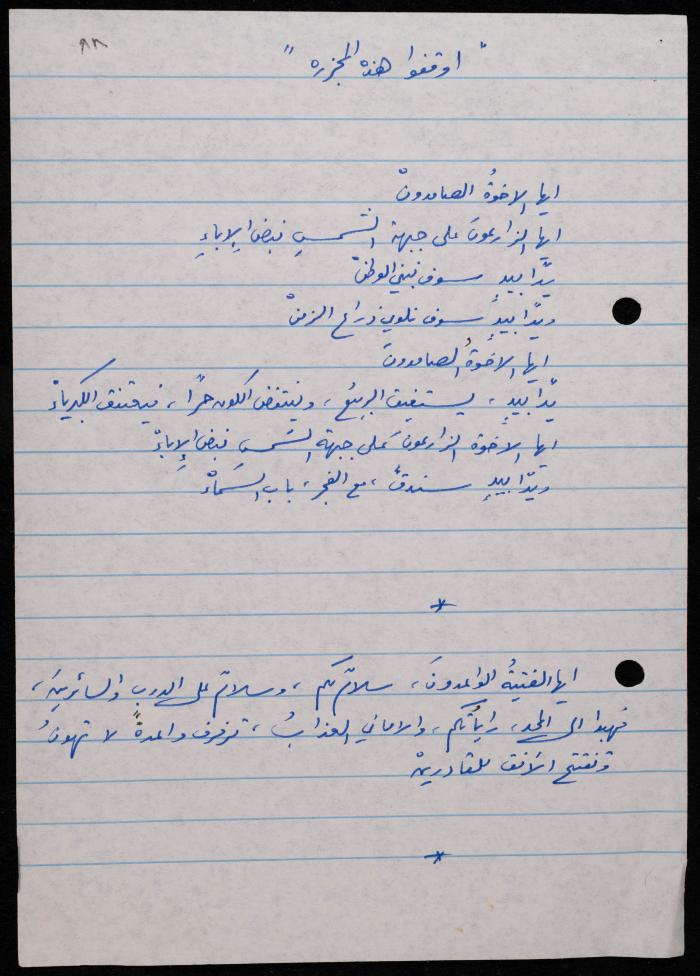 ٨٨
" اوقفوا هذه المجزره "
ايها الاخوةُ الصامدونْ
ايها الزارعونَ على جبهة الشمسِ نبضَ الإباءِ
يدًا بيدٍ سوف نبني الوطنْ
ويدًا بيدٍ سوف نلوي ذراع الزمنْ
ايها الاخوةُ الصامدونَ
يدًا بيدٍ ، يستفيق الربيعُ ، وينتفض الكون حرًا ، فيعتنق الكبرياءْ
ايها الاخوة الزارعونَ على جبهة الشمسِ نبضَ الإباءْ
ويدًا بيدٍ سندقُّ ، مع الفجر ، باب السماءْ
*
ايها الفتيةُ الواعدونَ ، سلامٌ لكم ، وسلامٌ على الدرب والسائرينَ ،
فهبوا الى المجد ، راياتُكم ، والاماني العذابُ ، ترفرف واعدةً لا تهونُ
وتفتح الأفق للقادرينْ
*